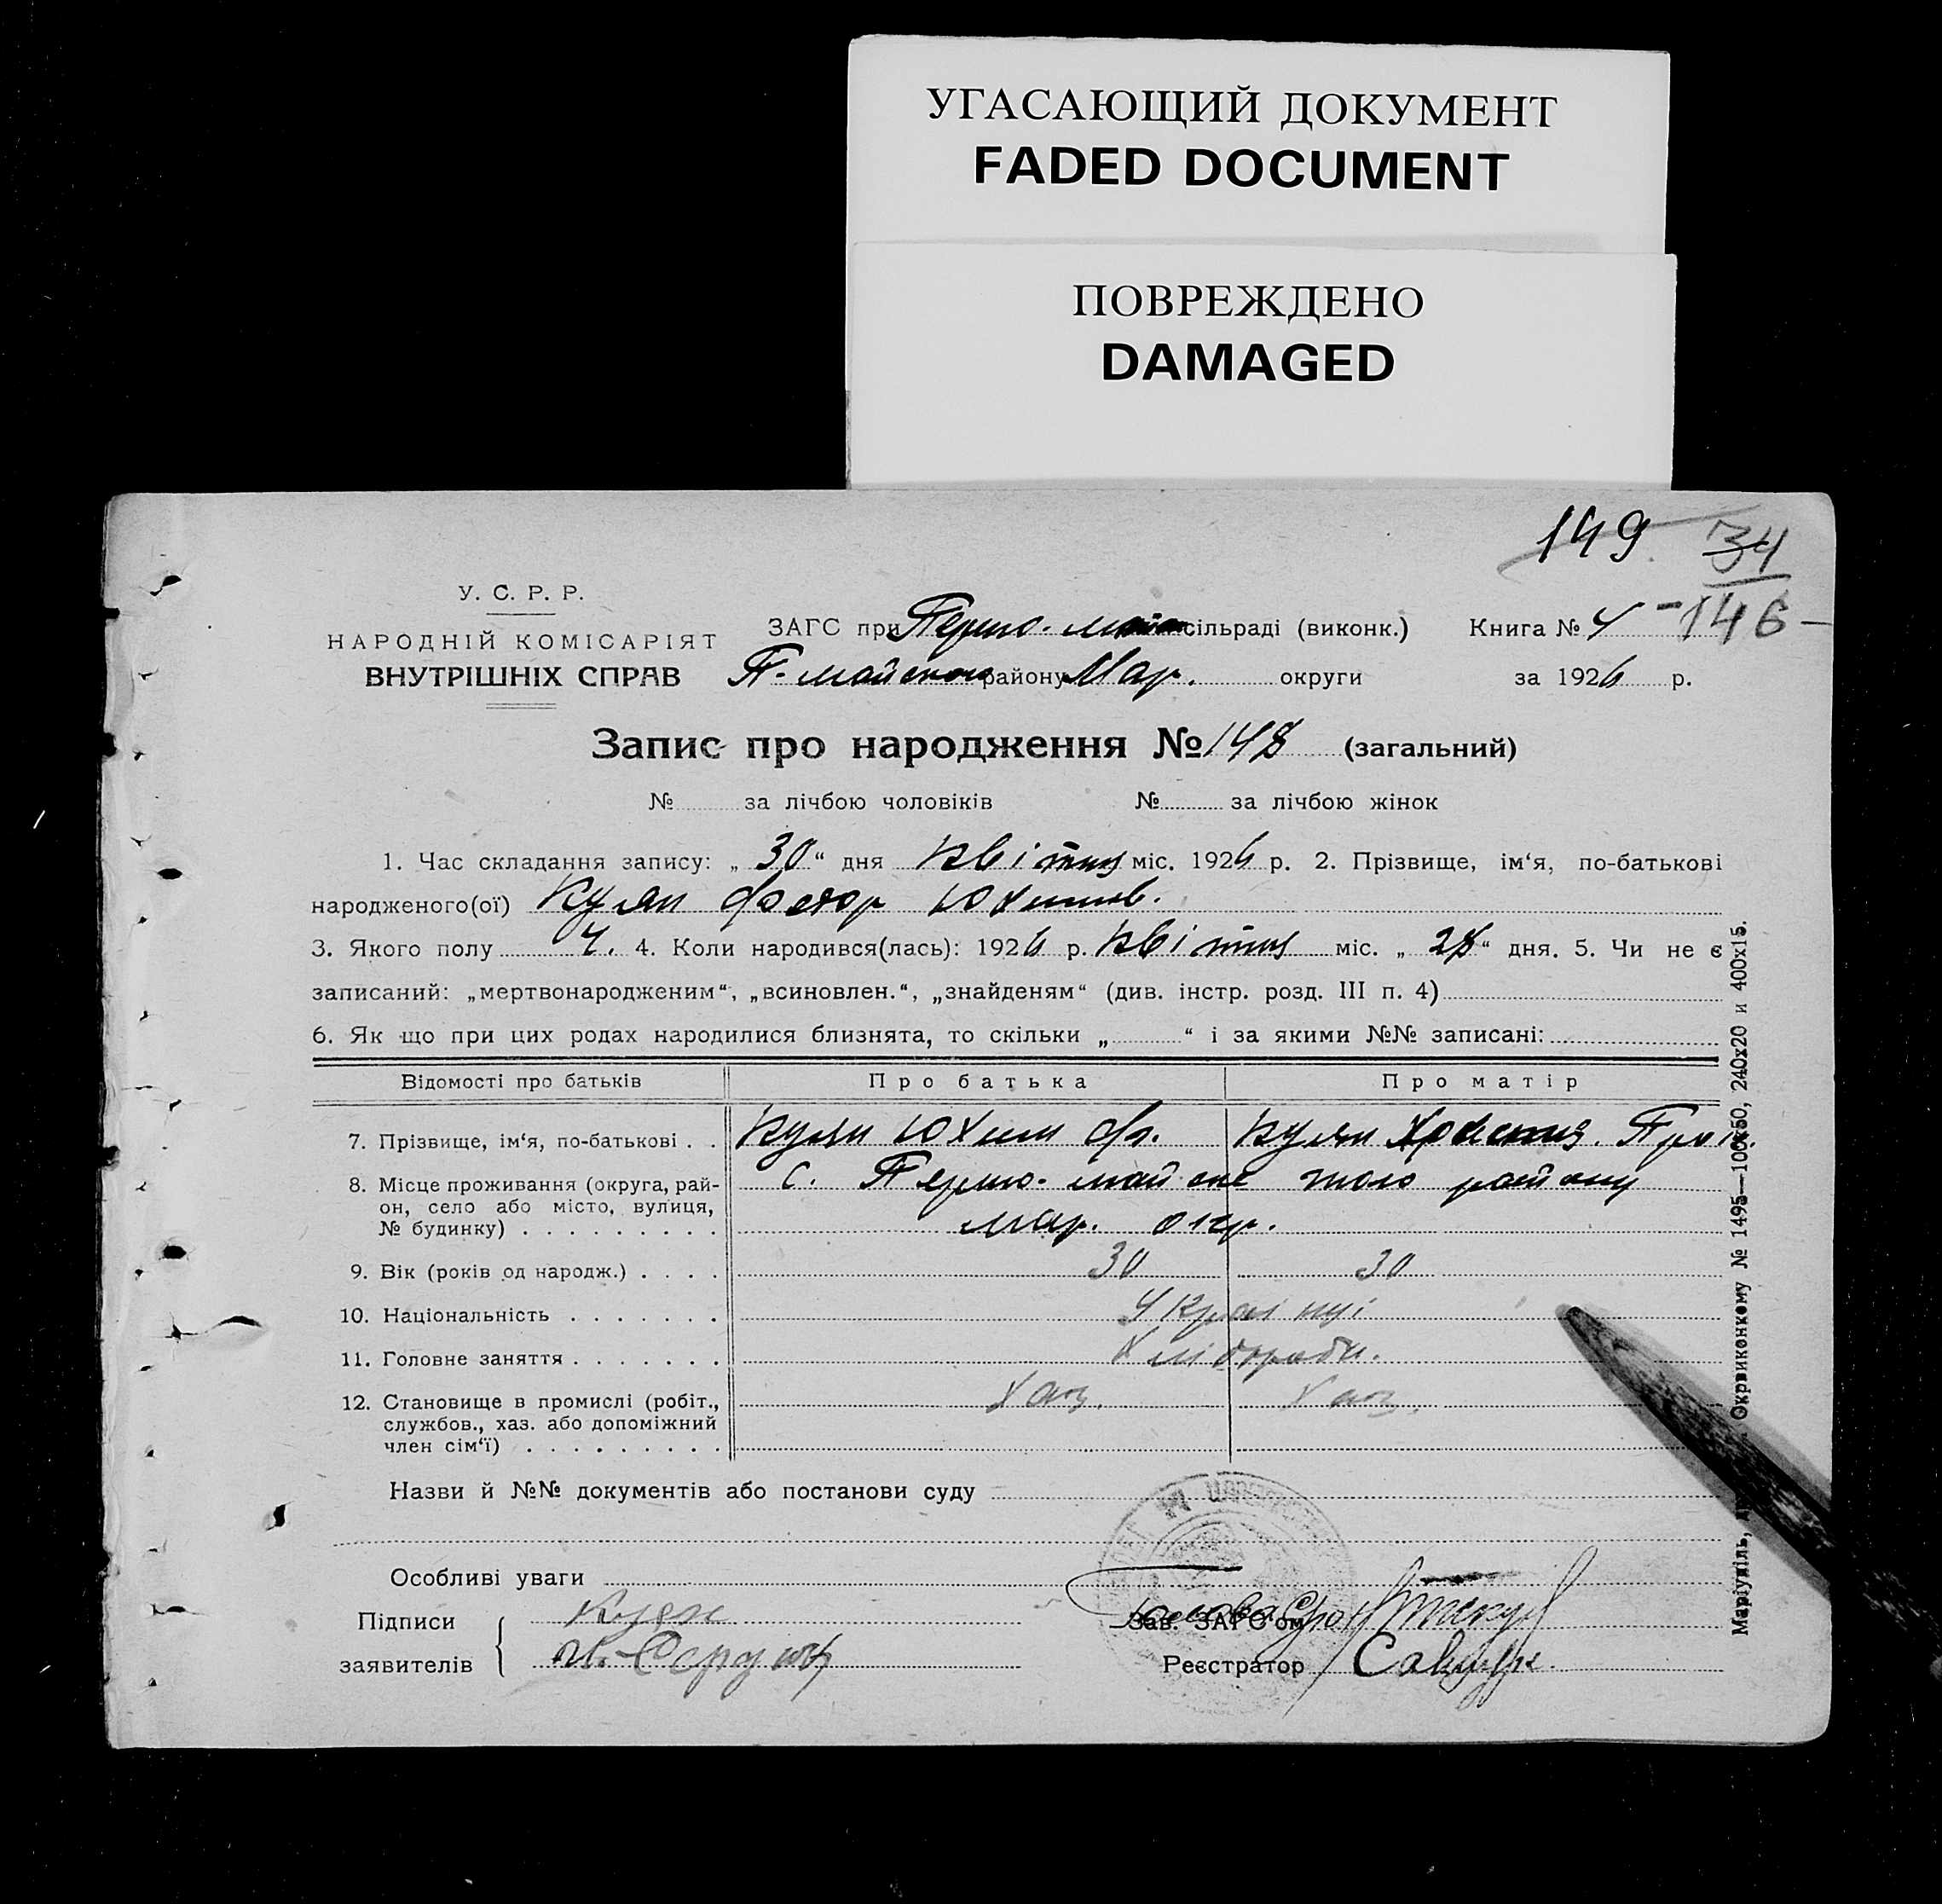 УГАСАЮЩИЙ ДОКУМЕНТ
FADED DOCUMENT
ПОВРЕЖДЕНО
DAMAGED
149 34
У. С. Р. Р.
НАРОДНІЙ КОМІСАРІЯТ
ВНУТРІШНІХ СПРАВ
ЗАГС при Першо-май сільраді (виконк.) Книга № 4 -146-
П-майського району Мар. округи за 1926 р.
Запис про народження № 148 (загальний)
№ за лічбою чоловіків № за лічбою жінок
1. Час складання запису: „30“ дня Квітня міс. 1926 р. 2. Прізвище, ім‘я, по-батькові
народженого(ої) Куян Федор Юхимов.
3. Якого полу Ч. 4. Коли народився(лась): 1926 р. Квітня міс. „28“ дня. 5. Чи не є
записаний: „мертвонародженим“, „всиновлен.“, „знайденям“ (див. інстр. розд. III п. 4)
6. Як що при цих родах народилися близнята, то скільки „ “ і за якими №№ записані:
Відомості про батьків Про батька Про матір
7. Прізвище, ім‘я, по-батькові . . Куян Юхим Ф. Куян Христия
8. Місце проживання (округа, рай-
он, село або місто, вулиця,
№ будинку) . . . . . . . . .
с. Першо-майське того району
мар. окр.
9. Вік (років од народж.) . . . . 30 30
10. Національність . . . . . . . Українці
11. Головне заняття . . . . . . . Хлібороби.
12. Становище в промислі (робіт.,
службов., хаз. або допоміжний
член сім‘ї) . . . . . . . . .
Хаз. Хаз.
Назви й №№ документів або постанови суду
Особливі уваги
Підписи
заявителів
Куян
Зав. ЗАГС‘ом
Голова
Реєстратор
Маріупіль, Окрвиконкому № 1495—100х50, 240х20 и 400х15.